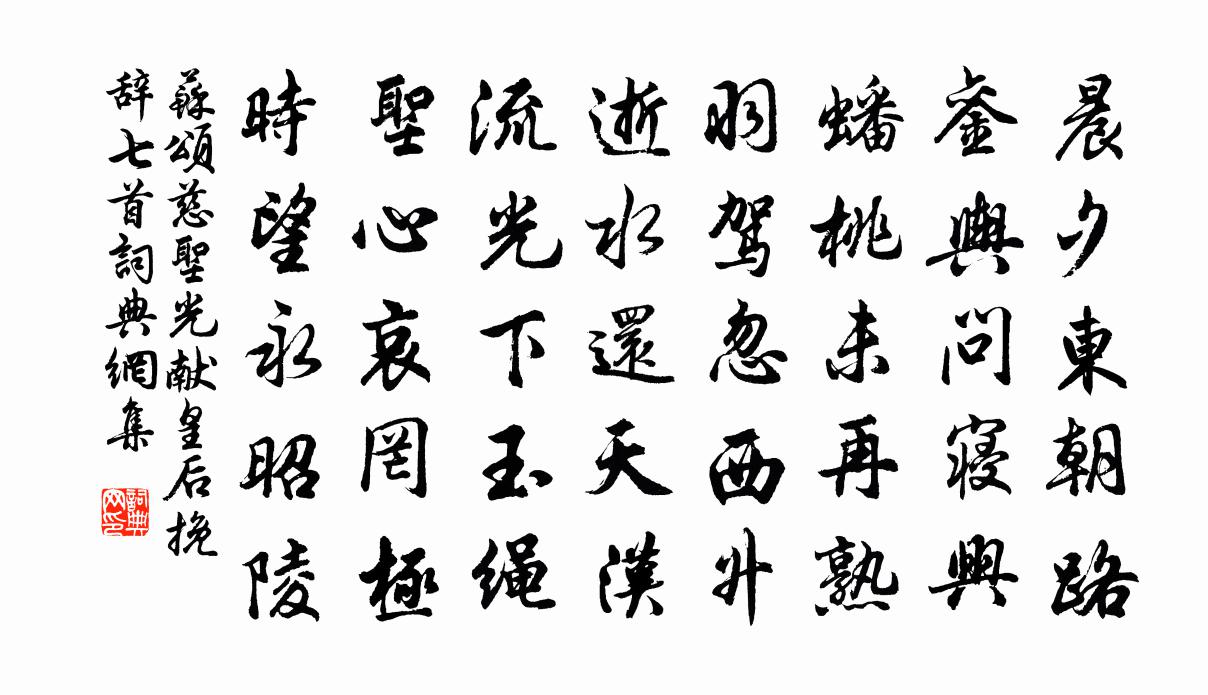 晨夕東朝路
銮輿問寝興
蟠桃未再熟
羽駕忽西升
逝水還天漢
流光下玉绳
聖心哀罔極
時望永昭陵
蘇頌慈聖光献皇后挽
辞七首詞典網集
詞典网印